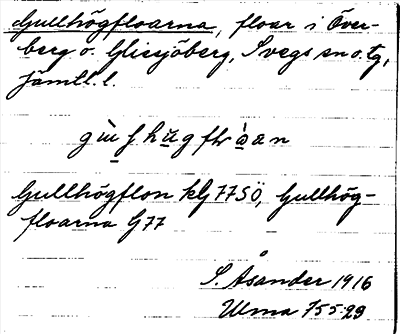 Gullhögfloarna, floar i Över-
berg o. Glissjöberg, Svegs sn o. tg,
Jämtl. l.
Gullhögflon klJ 77SÖ, Gullhög-
floarna G77
S. Åsander 1916
Ulma 755:29